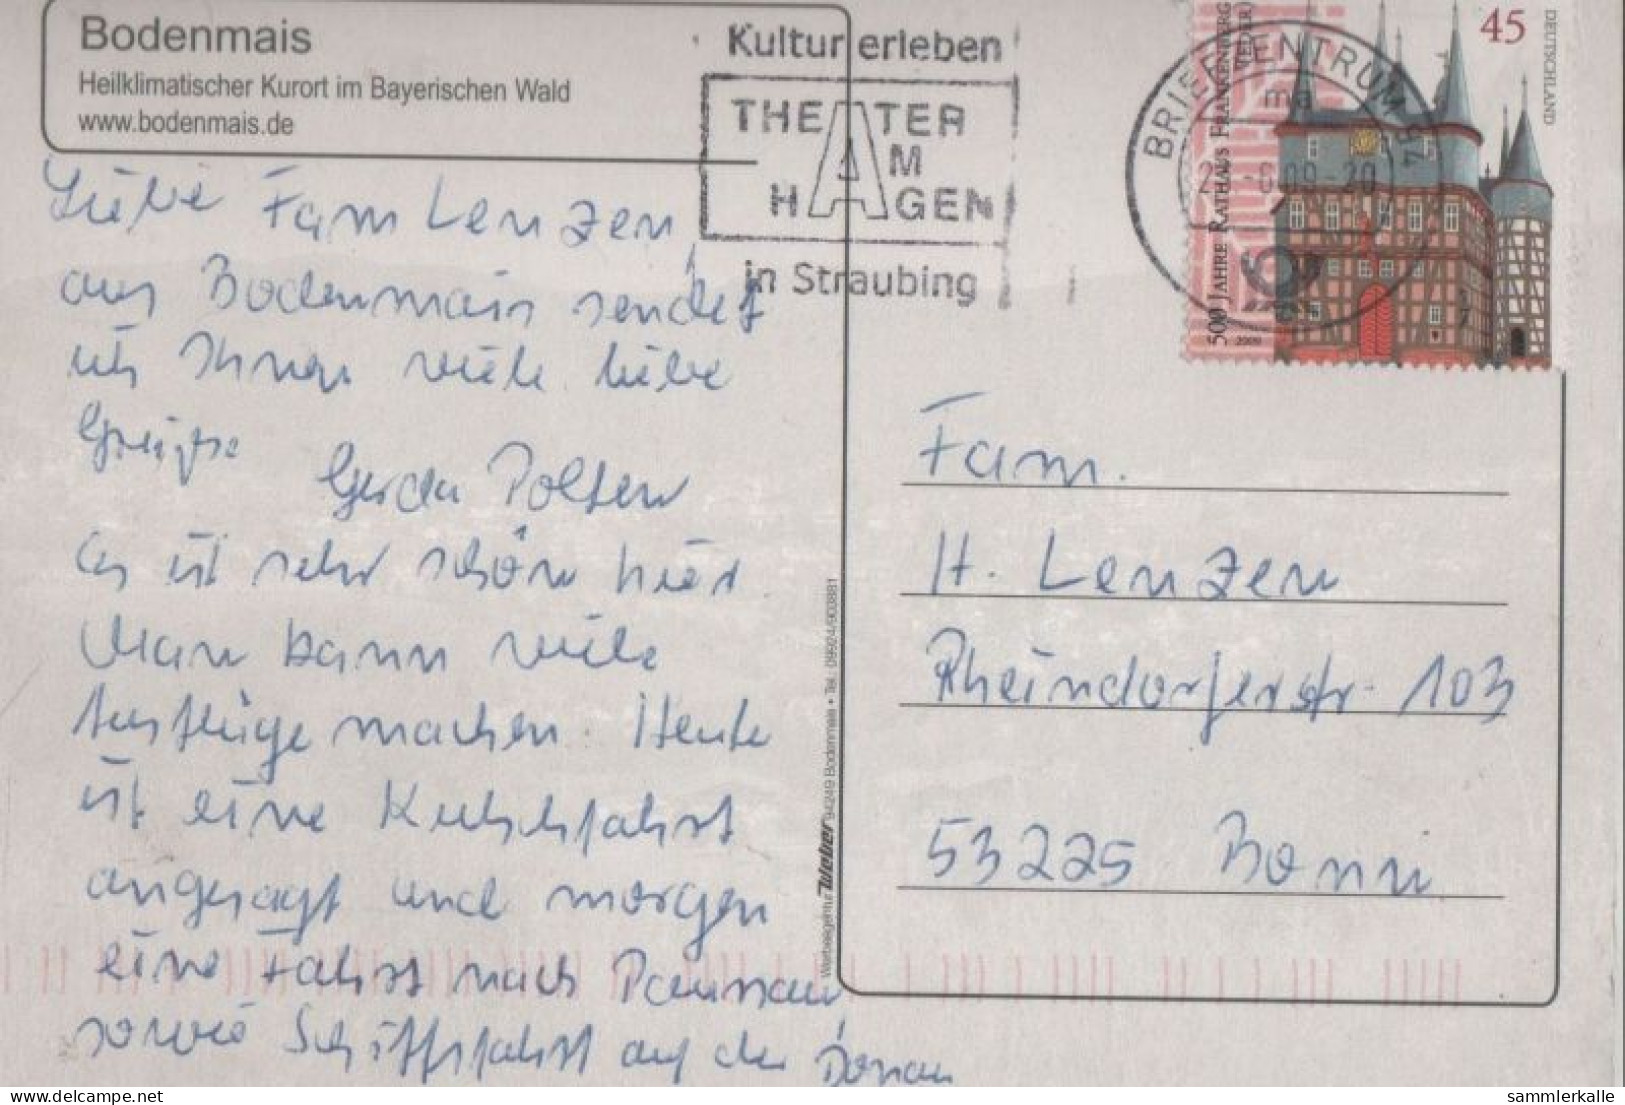 Bodenmais
Heilklimatischer Kurort im Bayerischen Wald
www.bodenmais.de
Kultur erleben
THEATER
AM
HAGEN
in Straubing
BRIEFZENTRUM 94
ma
-6.09-20
500 JAHRE RATHAUS FRANKENBERG (EDER)
2009
45
DEUTSCHLAND
Liebe Fam Lenzen,
aus Bodenmais sendet
ich Ihnen viele liebe
Grüße
Gerda Polten
Es ist sehr schön hier
Man kann viele
Ausflüge machen. Heute
ist eine Kutschfahrt
angesagt und morgen
eine Fahrt nach Passau
sowie Schiffsfahrt auf der Donau
Werbeagentur Weber 94249 Bodenmais • Tel.: 09924/903881
Fam.
H. Lenzen
Rheindorferstr. 103
53225 Bonn
delcampe.net
sammlerkalle